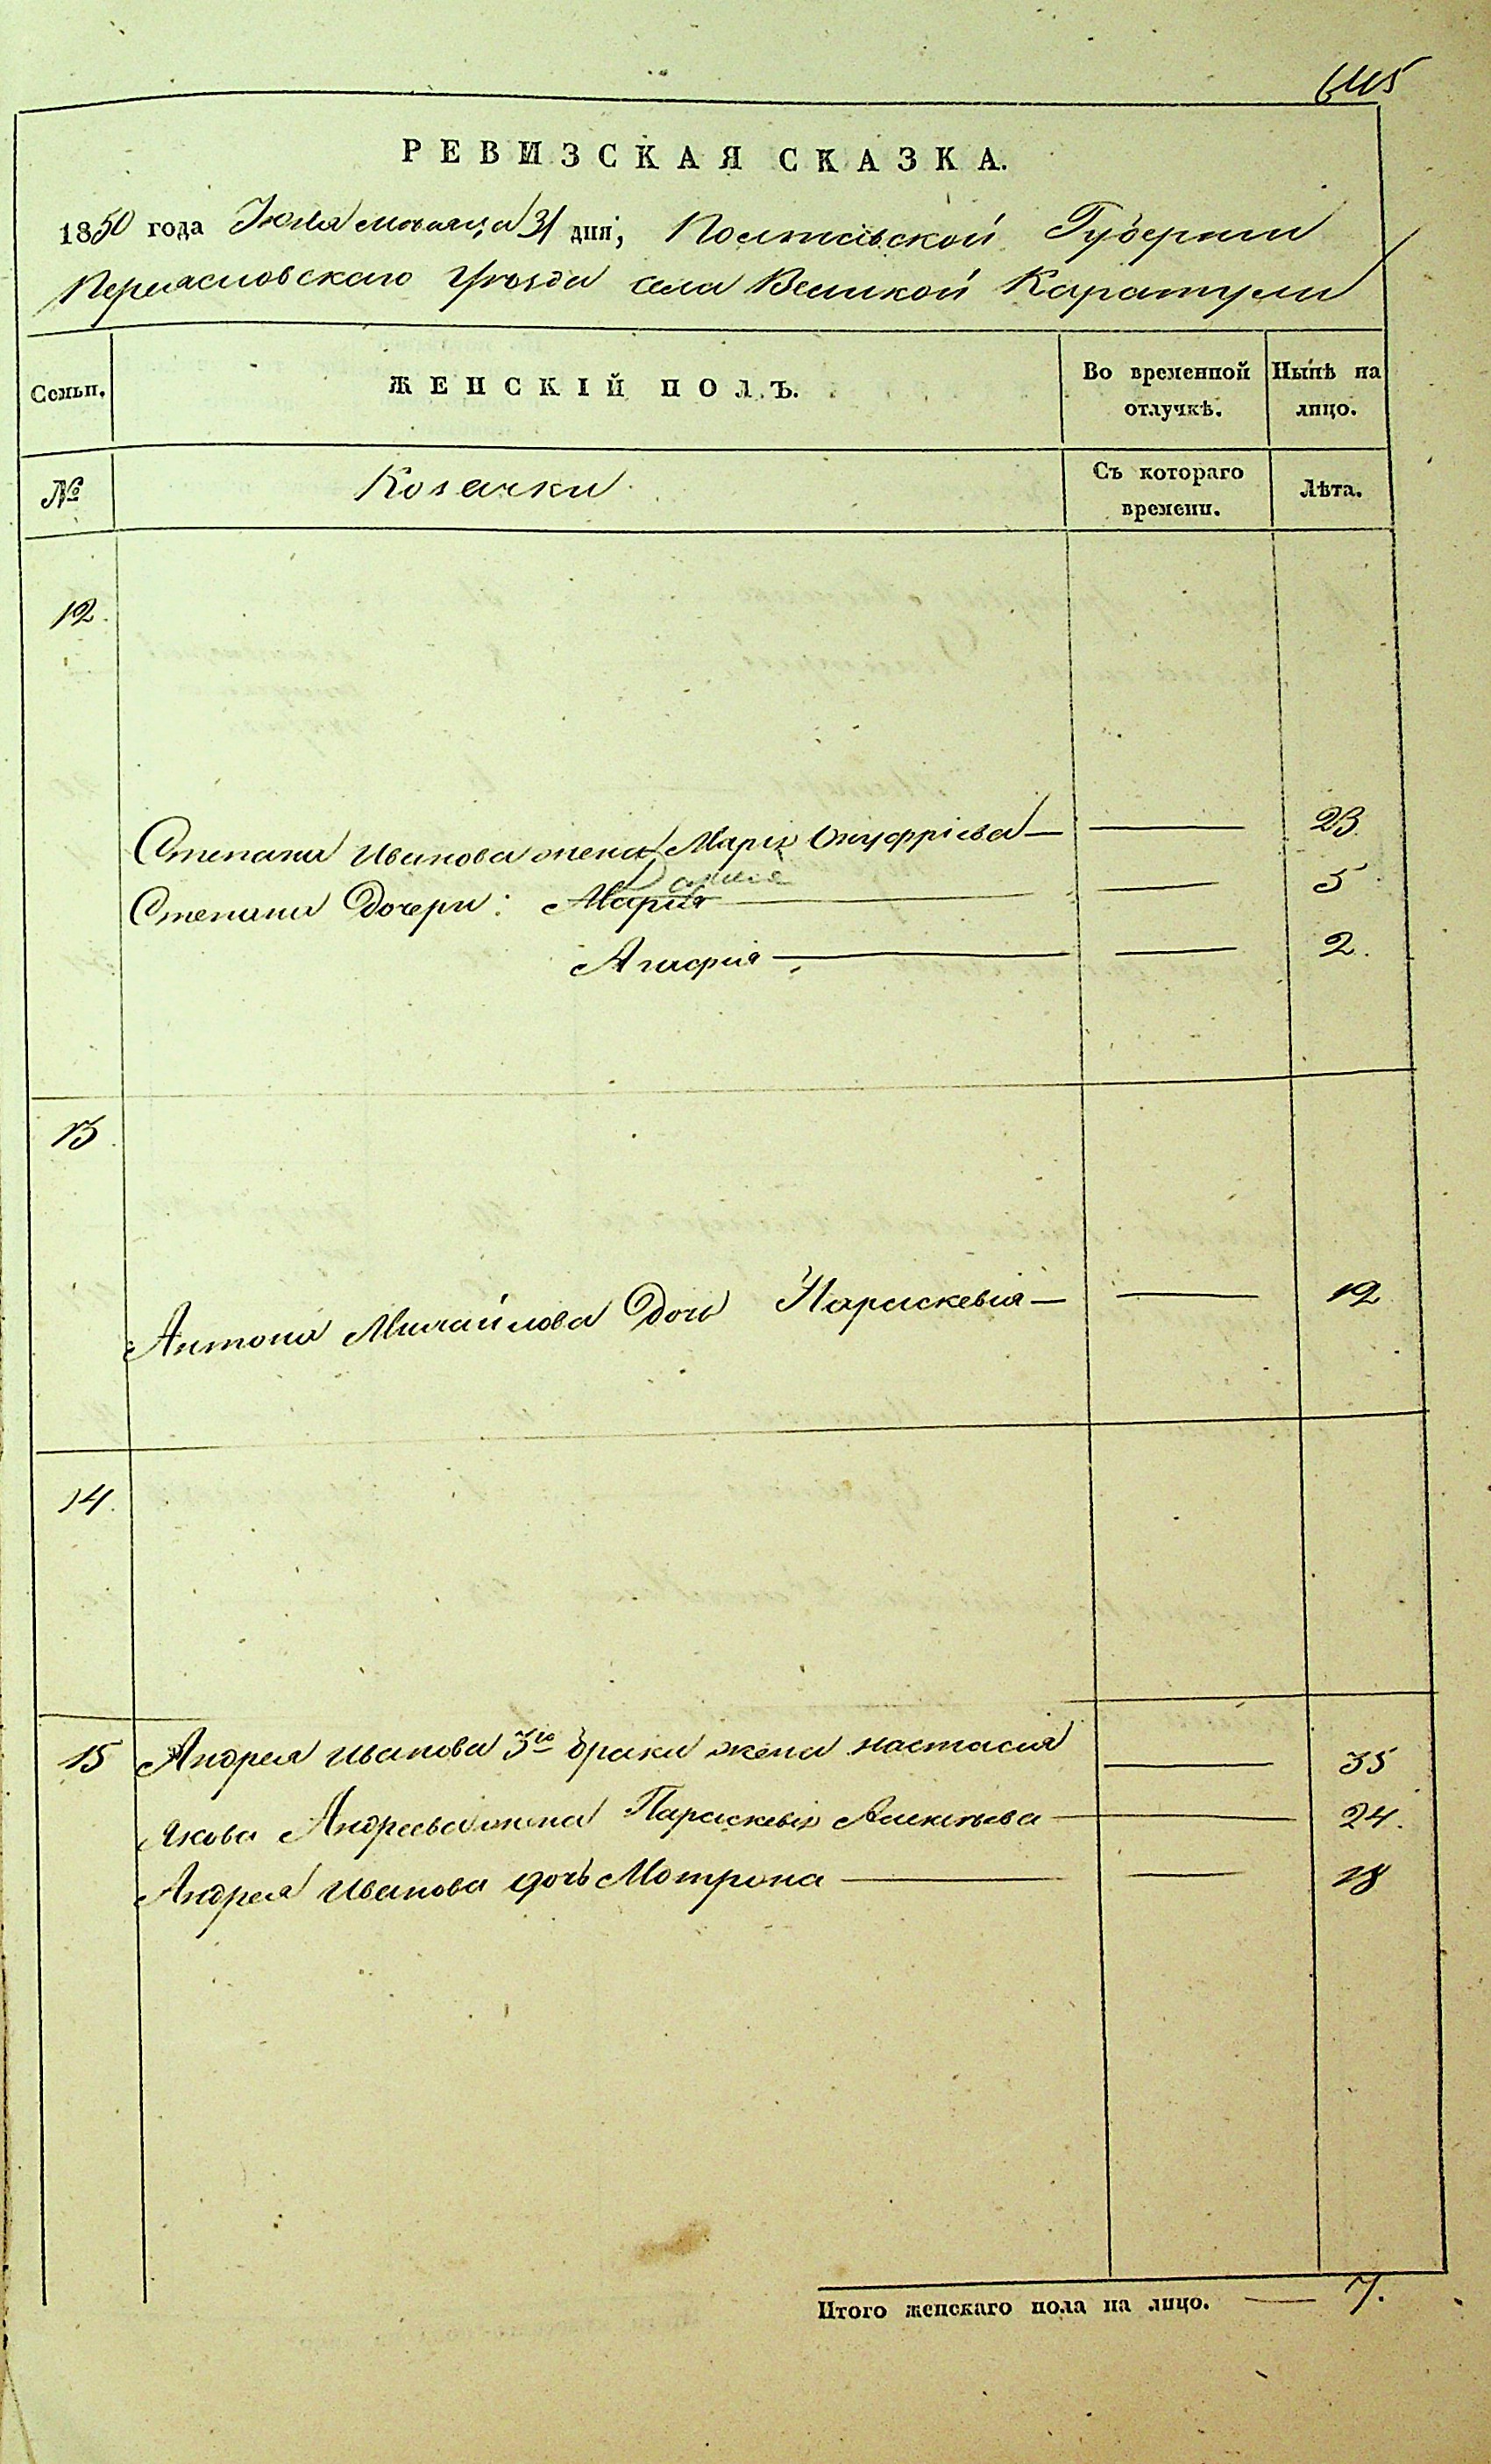 645
РЕВИЗСКАЯ СКАЗКА.
1850 года Іюля месяца 31 дня, Полтавской Губерніи
Переясловскаго Уѣзда села Великой Каратули
Семьи. ЖЕНСКІЙ ПОЛЪ. Во временной отлучкѣ. Нынѣ на лицо.
№ Козачки Съ котораго времени. Лѣта.
12.
Степана Иванова жена Марія Онуфріева — 23
Дарія
Степана Дочери: Марія 5
Агафия — 2.
13.
Антона Михайлова Дочь Параскевія — 12
14.
15 Андрея Иванова 3го брака жена настасия 35
Якова Андреева жена Параскевія Алексѣева 24.
Андрея Иванова дочь Мотрона 18
Итого женскаго пола на лицо. — 7.